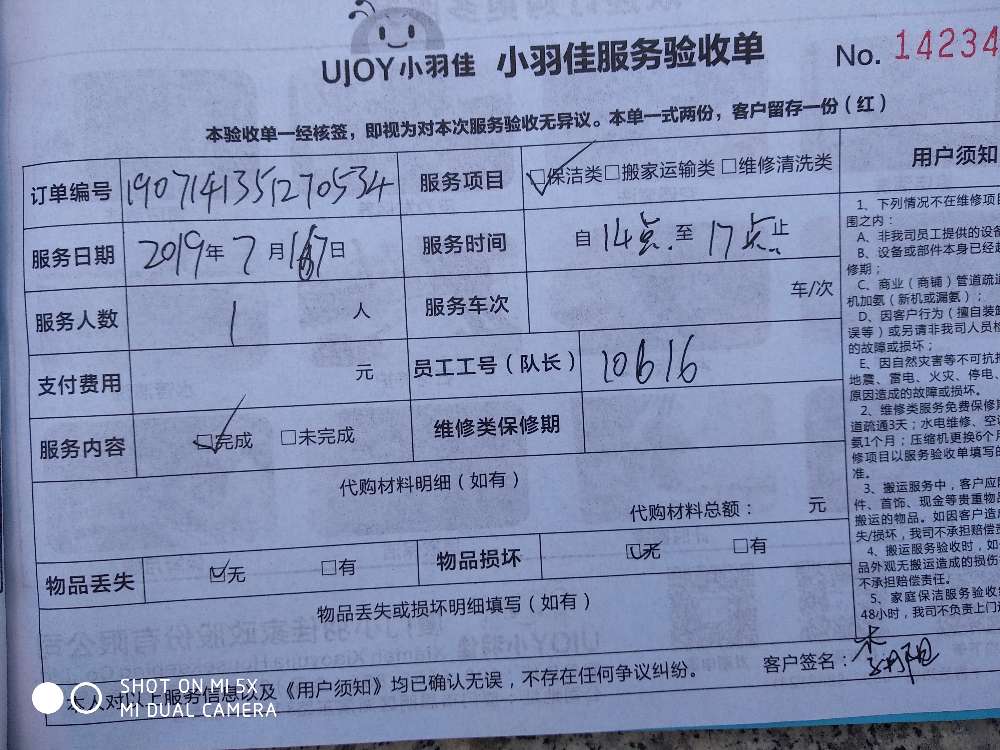 UJOY小羽佳 小羽佳服务验收单 No. 14234
本验收单一经核签，即视为对本次服务验收无异议。本单一式两份，客户留存一份（红）
订单编号 1907141351270534 服务项目 □保洁类□搬家运输类 □维修清洗类
服务日期 2019年7月 日 服务时间 自14点至17点止
服务人数 1人 服务车次 车/次
支付费用 元 员工工号（队长） 10616
服务内容 □完成 □未完成 维修类保修期
代购材料明细（如有）
代购材料总额： 元
物品丢失 □无 □有 物品损坏 □无 □有
物品丢失或损坏明细填写（如有）
本人对以上服务信息以及《用户须知》均已确认无误，不存在任何争议纠纷。 客户签名：
用户须知
1、下列情况不在维修项目
围之内：
A、非我司员工提供的设备
B、设备或部件本身已经超
修期；
C、商业（商铺）管道疏通
机加氨（新机或漏氨）；
D、因客户行为（擅自装卸
误等）或另请非我司人员检
的故障或损坏；
E、因自然灾害等不可抗拒
地震、雷电、火灾、停电、
原因造成的故障或损坏。
2、维修类服务免费保修期
道疏通3天；水电维修、空调
氨1个月；压缩机更换6个月
修项目以服务验收单填写的
准。
3、搬运服务中，客户应
件、首饰、现金等贵重物品
搬运的物品。如因客户造成
失/损坏，我司不承担赔偿责
4、搬运服务验收时，如
品外观无搬运造成的损伤
不承担赔偿责任。
5、家庭保洁服务验收
48小时，我司不负责上门
SHOT ON MI 5X
MI DUAL CAMERA